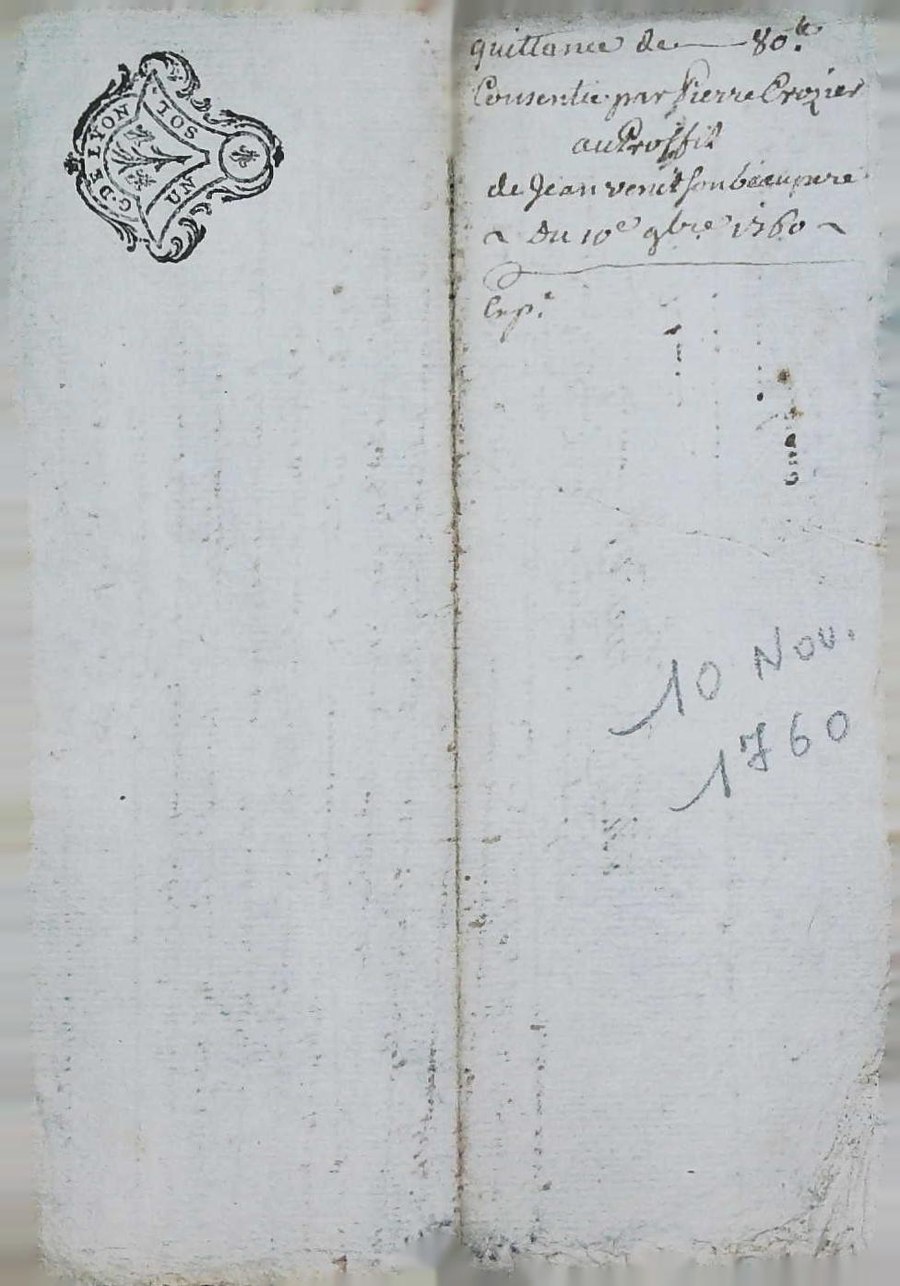 G. DE LYON
UN SOL
quittance de — 80.lt
Consentie par Pierre Crozier
au Proffit
de Jean venet son beaupere
~ Du 10e 9bre 1760 ~
Exp.e
10 Nov.
1760